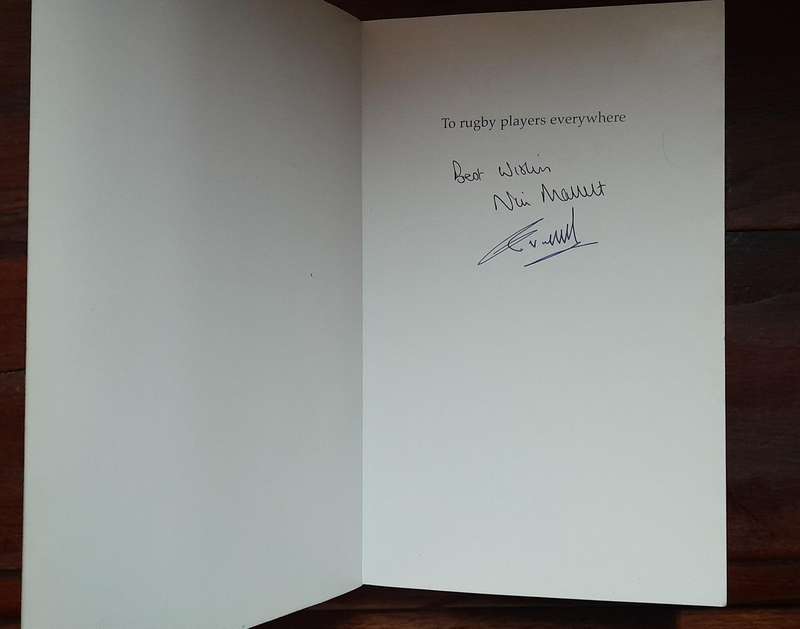 To rugby players everywhere
Best Wishes
Nick Mallett